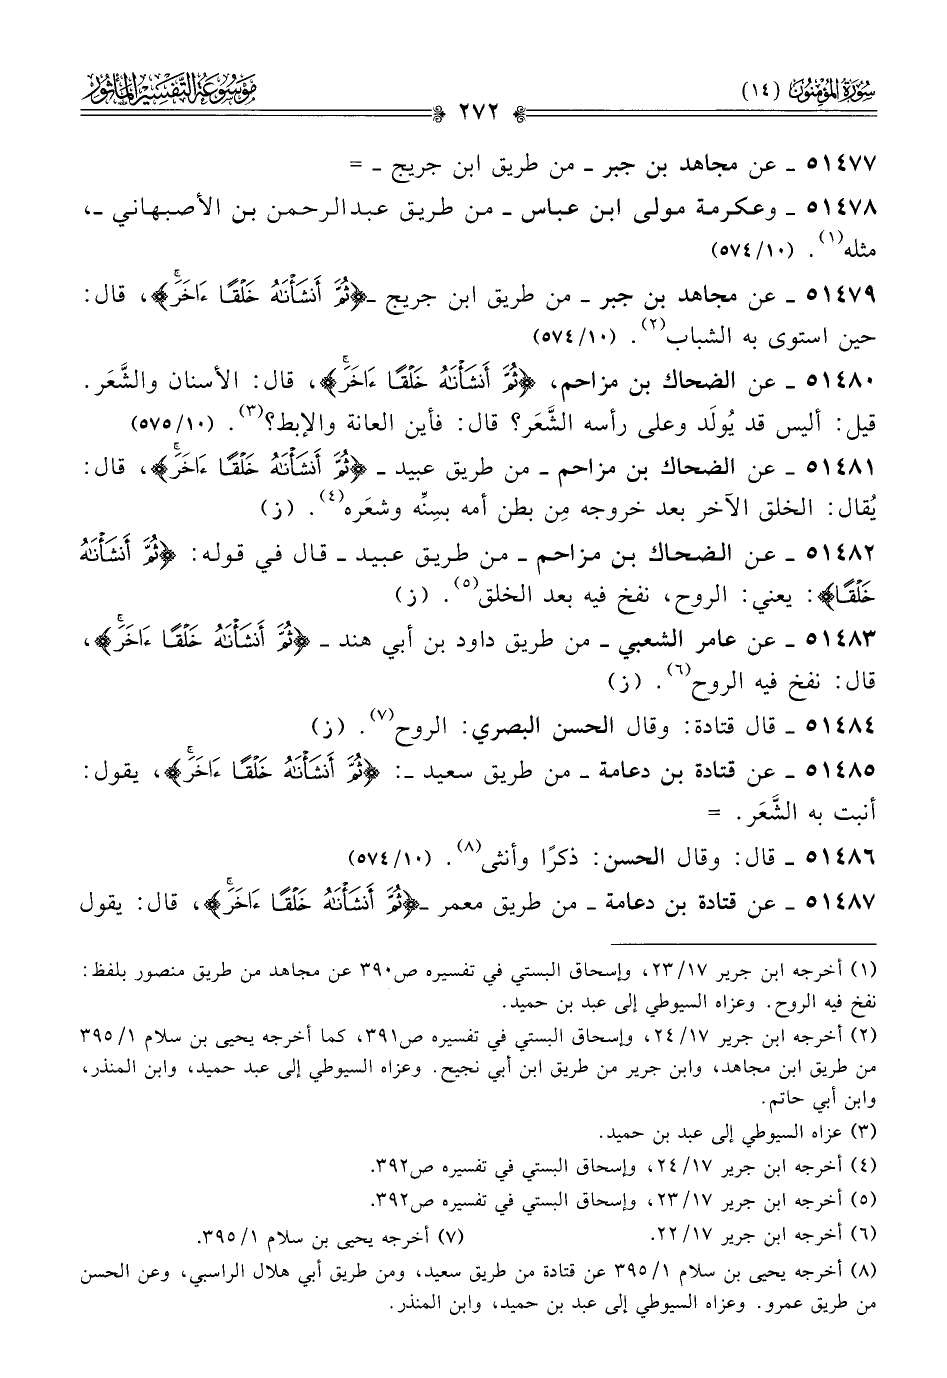 سُورَةُ المُؤْمِنُونَ (١٤)
مَوْسُوعَةُ التَّفْسِيرِ المَأْثُورِ
٢٧٢
٥١٤٧٧ ـ عن مجاهد بن جبر ـ من طريق ابن جريج ـ =
٥١٤٧٨ ـ وعكرمة مولى ابن عباس ـ من طريق عبدالرحمن بن الأصبهاني ـ،
مثله(١). (١٠/ ٥٧٤)
٥١٤٧٩ ـ عن مجاهد بن جبر ـ من طريق ابن جريج ـ ﴿ثُمَّ أَنشَأْنَٰهُ خَلْقًا ءَاخَرَۚ﴾، قال:
حين استوى به الشباب(٢). (١٠/ ٥٧٤)
٥١٤٨٠ ـ عن الضحاك بن مزاحم، ﴿ثُمَّ أَنشَأْنَٰهُ خَلْقًا ءَاخَرَۚ﴾، قال: الأسنان والشَّعَر.
قيل: أليس قد يُولَد وعلى رأسه الشَّعَر؟ قال: فأين العانة والإبط؟(٣). (١٠/ ٥٧٥)
٥١٤٨١ ـ عن الضحاك بن مزاحم ـ من طريق عبيد ـ ﴿ثُمَّ أَنشَأْنَٰهُ خَلْقًا ءَاخَرَۚ﴾، قال:
يُقال: الخلق الآخر بعد خروجه مِن بطن أمه بسِنِّه وشعَره(٤). (ز)
٥١٤٨٢ ـ عن الضحاك بن مزاحم ـ من طريق عبيد ـ قال في قوله: ﴿ثُمَّ أَنشَأْنَٰهُ
خَلْقًا﴾: يعني: الروح، نفخ فيه بعد الخلق(٥). (ز)
٥١٤٨٣ ـ عن عامر الشعبي ـ من طريق داود بن أبي هند ـ ﴿ثُمَّ أَنشَأْنَٰهُ خَلْقًا ءَاخَرَۚ﴾،
قال: نفخ فيه الروح(٦). (ز)
٥١٤٨٤ ـ قال قتادة: وقال الحسن البصري: الروح(٧). (ز)
٥١٤٨٥ ـ عن قتادة بن دعامة ـ من طريق سعيد ـ: ﴿ثُمَّ أَنشَأْنَٰهُ خَلْقًا ءَاخَرَۚ﴾، يقول:
أنبت به الشَّعَر. =
٥١٤٨٦ ـ قال: وقال الحسن: ذكرًا وأنثى(٨). (١٠/ ٥٧٤)
٥١٤٨٧ ـ عن قتادة بن دعامة ـ من طريق معمر ـ ﴿ثُمَّ أَنشَأْنَٰهُ خَلْقًا ءَاخَرَۚ﴾، قال: يقول
(١) أخرجه ابن جرير ١٧/ ٢٣، وإسحاق البستي في تفسيره ص٣٩٠ عن مجاهد من طريق منصور بلفظ:
نفخ فيه الروح. وعزاه السيوطي إلى عبد بن حميد.
(٢) أخرجه ابن جرير ١٧/ ٢٤، وإسحاق البستي في تفسيره ص٣٩١، كما أخرجه يحيى بن سلام ١/ ٣٩٥
من طريق ابن مجاهد، وابن جرير من طريق ابن أبي نجيح. وعزاه السيوطي إلى عبد حميد، وابن المنذر،
وابن أبي حاتم.
(٣) عزاه السيوطي إلى عبد بن حميد.
(٤) أخرجه ابن جرير ١٧/ ٢٤، وإسحاق البستي في تفسيره ص٣٩٢.
(٥) أخرجه ابن جرير ١٧/ ٢٣، وإسحاق البستي في تفسيره ص٣٩٢.
(٦) أخرجه ابن جرير ١٧/ ٢٢.
(٧) أخرجه يحيى بن سلام ١/ ٣٩٥.
(٨) أخرجه يحيى بن سلام ١/ ٣٩٥ عن قتادة من طريق سعيد، ومن طريق أبي هلال الراسبي، وعن الحسن
من طريق عمرو. وعزاه السيوطي إلى عبد بن حميد، وابن المنذر.